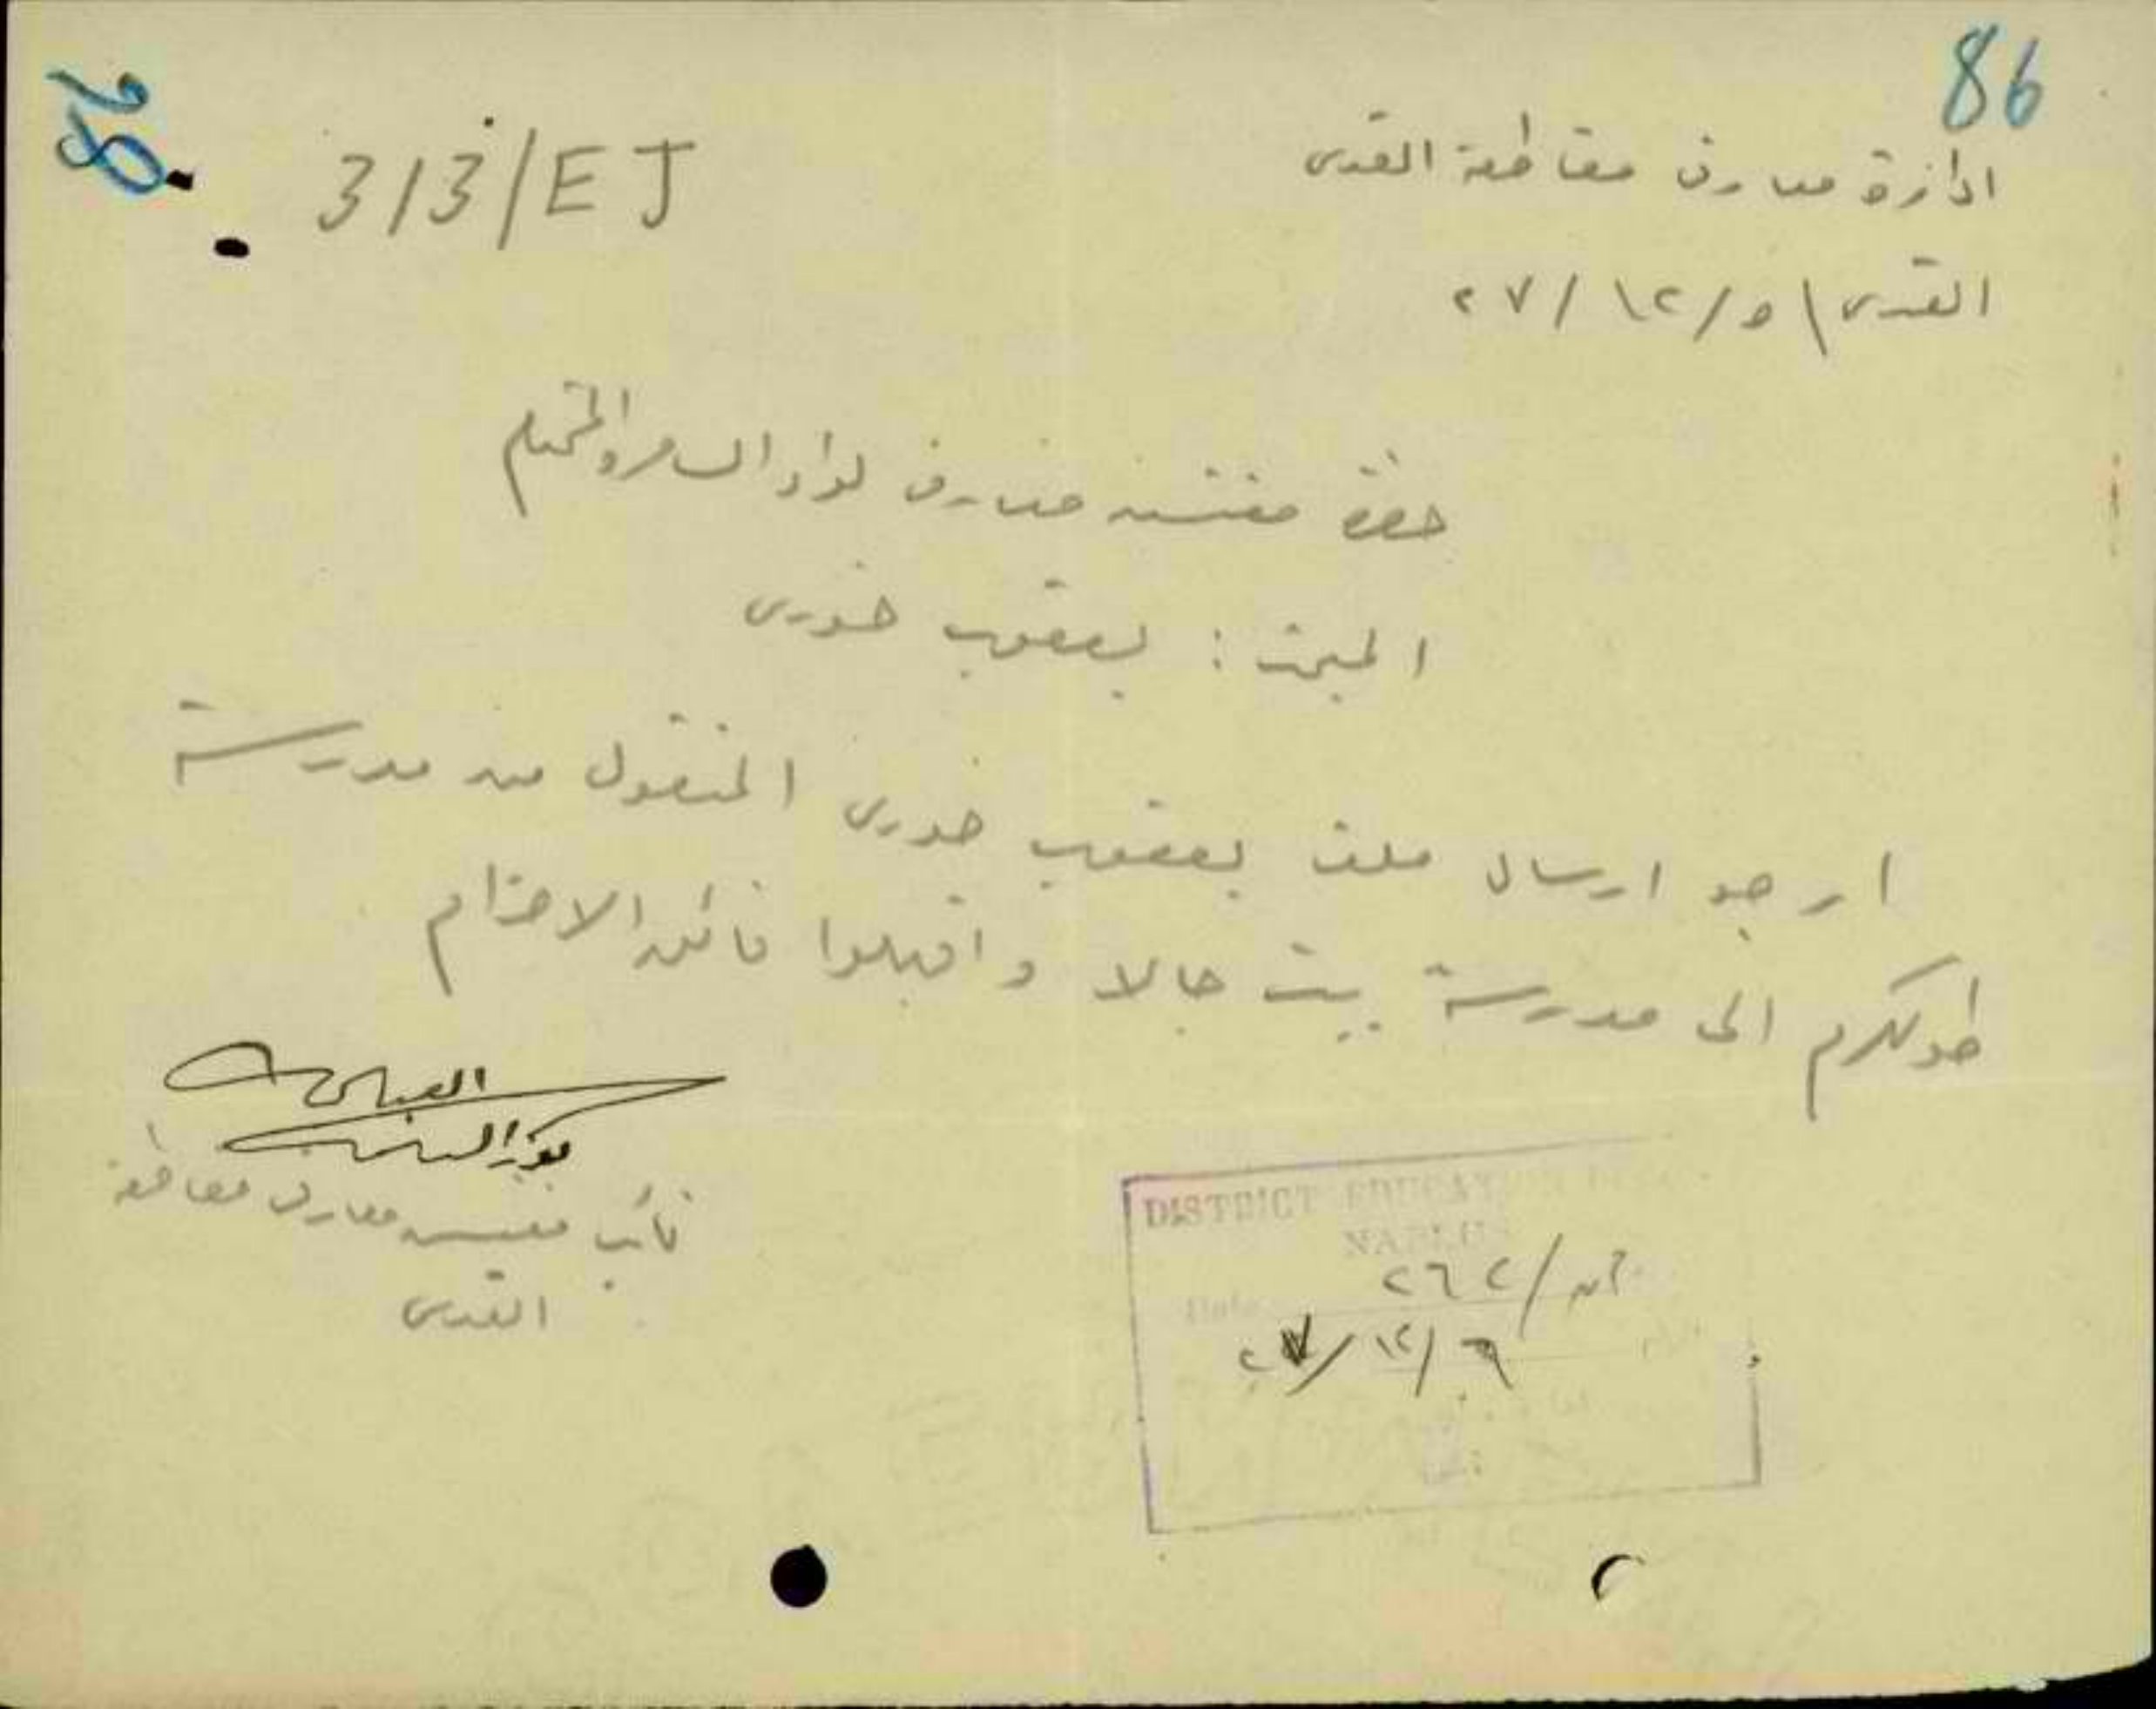 86
28
313/EJ
ادارة معارف مقاطعة القدس
القدس ٥/١٢/٢٧
حضرة مفتش معارف لواء السامرة المحترم
المبحث : يعقوب خوري
ارجو ارسال ملف يعقوب خوري المنقول من مدرسة
طولكرم الى مدرسة بيت جالا واقبلوا فائق الاحترام
نائب مفتش معارف مقاطعة
القدس
DISTRICT EDUCATION
NABLUS
٢٦٢/
Date
٦/١٢/٢٧